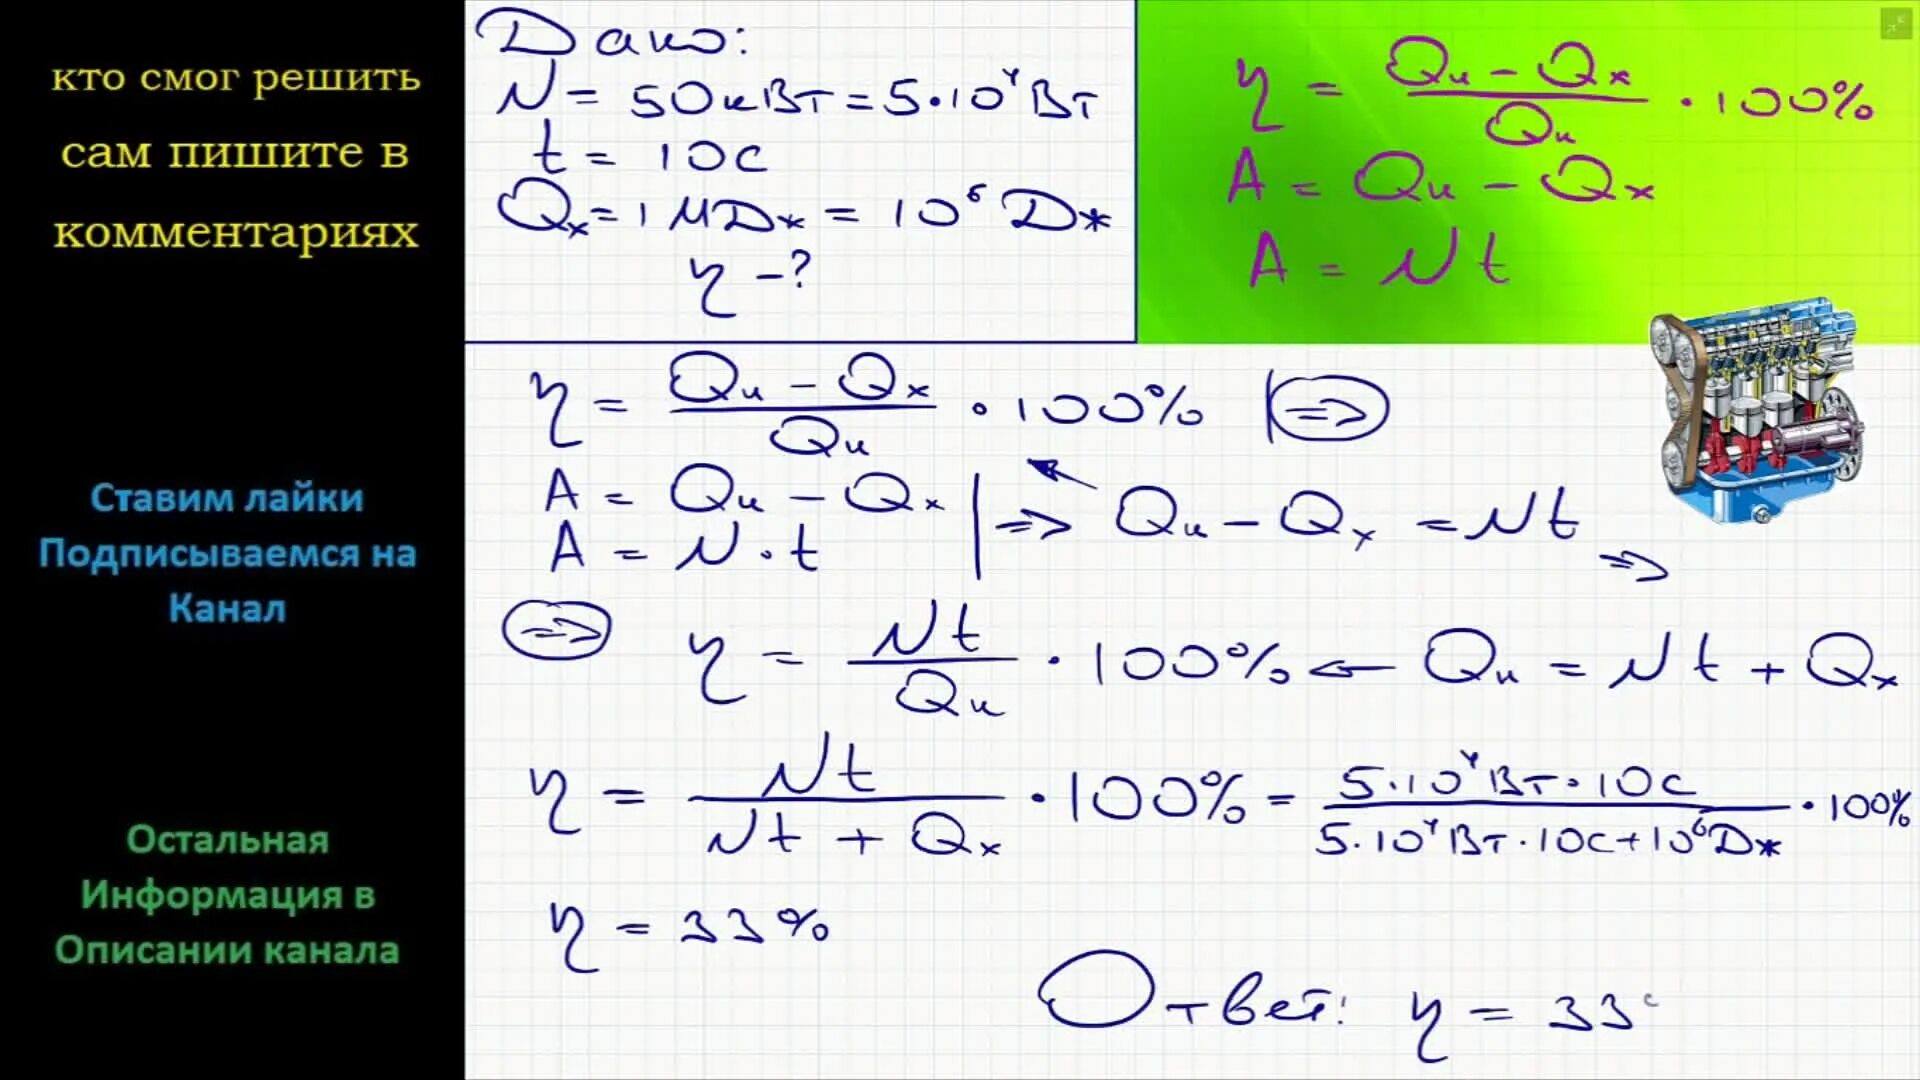 кто смог решить
сам пишите в
комментариях
Ставим лайки
Подписываемся на
Канал
Остальная
Информация в
Описании канала
Дано:
N = 50кВт = 5·10⁴Вт
t = 10с
Qₓ = 1МДж = 10⁶Дж
η -?
η = (Qн - Qₓ)/Qн · 100%
A = Qн - Qₓ
A = Nt
η = (Qн - Qₓ)/Qн · 100% | ⇒
A = Qн - Qₓ
A = N·t | ⇒ Qн - Qₓ = Nt ⇒
⇒ η = Nt/Qн · 100% ← Qн = Nt + Qₓ
η = Nt/(Nt + Qₓ) · 100% = (5·10⁴Вт·10с)/(5·10⁴Вт·10с+10⁶Дж) · 100%
η = 33%
Ответ: η = 33